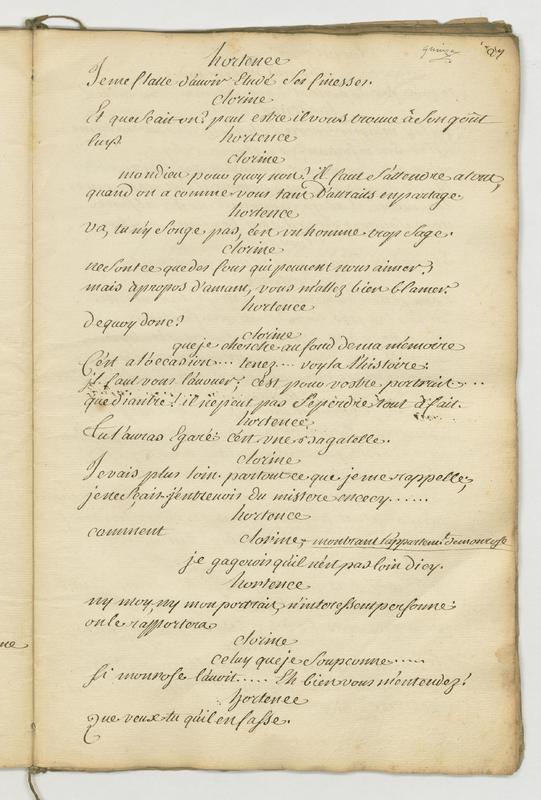 hortence
Je me flatte d'avoir Eludé Ses finesses.
clorine
Et que Scait on? peut estre il vous trouve à Son goût
luy?
hortence
clorine
mon dieu pour quoy non? il faut S'attendre a tout,
quand on a comme vous tant D'attraits en partage.
hortence
va, tu n'y Songe pas, c'est un homme trop Sage.
clorine
ne Sont ce que des fous qui peuvent nous aimer?
mais apropos d'amant, vous m'allez bien blamer.
hortence
de quoy donc?
clorine
que je cherche au fond de ma memoire
C'est a l'occasion... tenez... voyla l'histoire:
il faut vous l'avouer; c'est pour vostre portrait...
que diantre! il n'a peut pas S'eperdre tout à fait.
hortence
tu l'auras Egaré: c'est une bagatelle.
clorine
Je vais plus loin. partout ce que je me rappelle,
je ne Scais, j'entrevois du mistere en cecy......
hortence
comment
clorine, montrant l'appartemt. de monrose
je gagerois qu'il n'est pas loin d'icy.
hortence
ny moy, ny mon portrait, n'interessent personne:
on le rapportera
clorine
celuy que je Soupconne.....
Si monrose l'avoit..... Eh bien vous m'entendez!
hortence
Que veux tu qu'il en fasse.